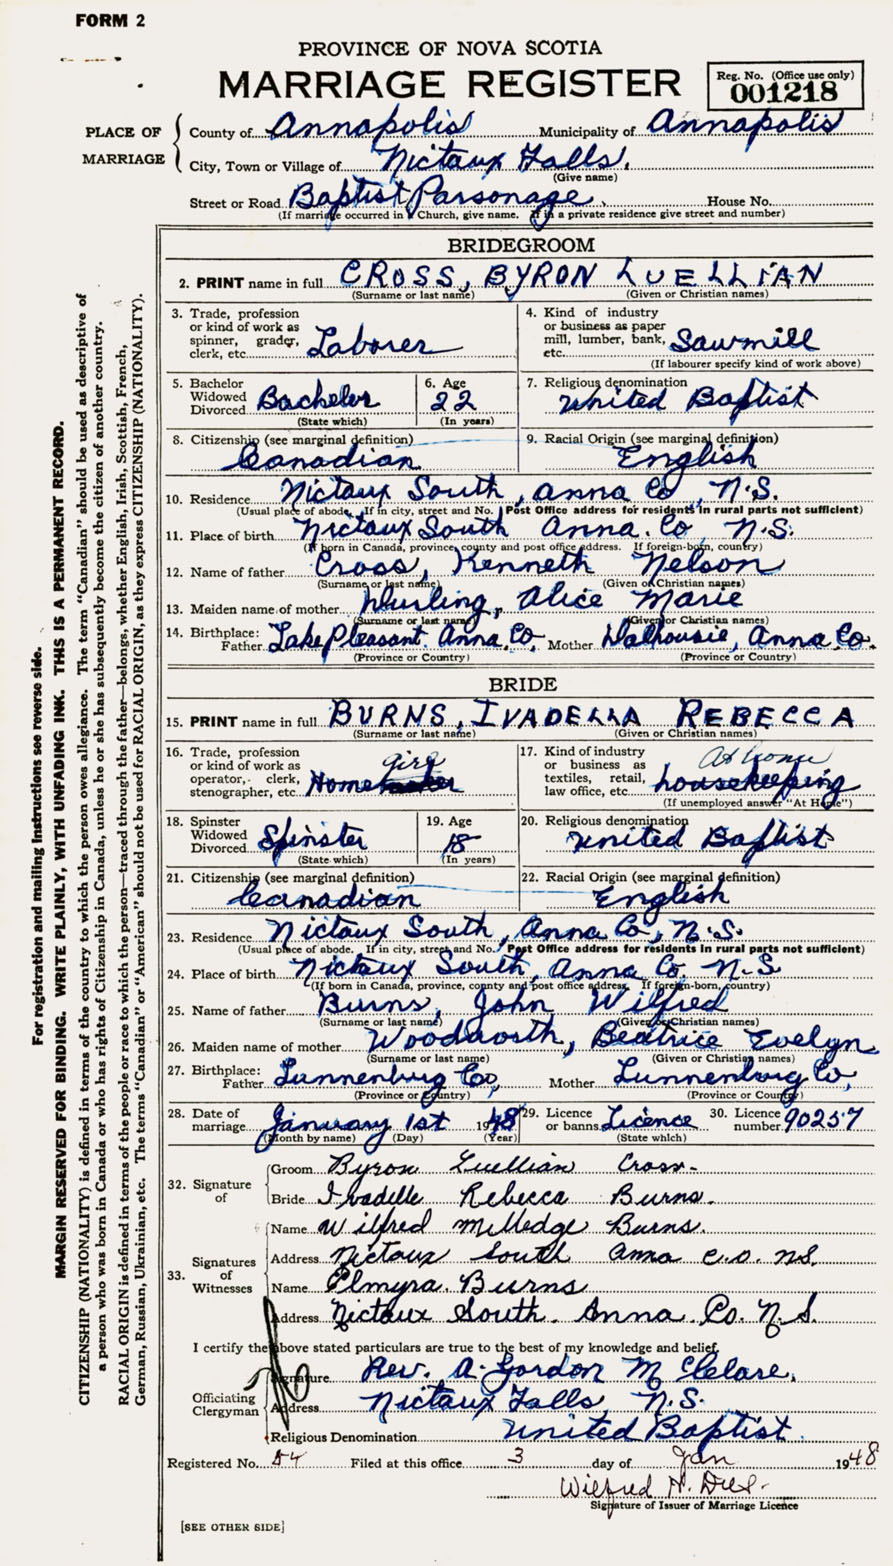 FORM 2
PROVINCE OF NOVA SCOTIA
MARRIAGE REGISTER
Reg. No. (Office use only)
001218
PLACE OF MARRIAGE
County of Annapolis Municipality of Annapolis
City, Town or Village of Nictaux Falls,
(Give name)
Street or Road Baptist Parsonage House No.
(If marriage occurred in Church, give name. If in a private residence give street and number)
BRIDEGROOM
2. PRINT name in full CROSS, BYRON LUELLIAN
(Surname or last name) (Given or Christian names)
3. Trade, profession or kind of work as spinner, grader, clerk, etc. Laborer
4. Kind of industry or business as paper mill, lumber, bank, etc. Sawmill
(If labourer specify kind of work above)
5. Bachelor Widowed Divorced Bachelor
(State which)
6. Age 22
(In years)
7. Religious denomination United Baptist
8. Citizenship (see marginal definition) Canadian
9. Racial Origin (see marginal definition) English
10. Residence Nictaux South, Anna Co, N.S.
(Usual place of abode. If in city, street and No. Post Office address for residents in rural parts not sufficient)
11. Place of birth Nictaux South Anna. Co N.S.
(If born in Canada, province, county and post office address. If foreign-born, country)
12. Name of father Cross, Kenneth Nelson
(Surname or last name) (Given or Christian names)
13. Maiden name of mother Durling, Alice Marie
(Surname or last name) (Given or Christian names)
14. Birthplace: Father Lake Pleasant. Anna Co, Mother Dalhousie, Anna Co.
(Province or Country) (Province or Country)
BRIDE
15. PRINT name in full BURNS, IVADELLA REBECCA
(Surname or last name) (Given or Christian names)
16. Trade, profession or kind of work as operator, clerk, stenographer, etc. Home girl
17. Kind of industry or business as textiles, retail, law office, etc. At home housekeeping
(If unemployed answer "At Home")
18. Spinster Widowed Divorced Spinster
(State which)
19. Age 18
(In years)
20. Religious denomination United Baptist
21. Citizenship (see marginal definition) Canadian
22. Racial Origin (see marginal definition) English
23. Residence Nictaux South, Anna Co, N.S.
(Usual place of abode. If in city, street and No. Post Office address for residents in rural parts not sufficient)
24. Place of birth Nictaux South, Anna Co. N.S.
(If born in Canada, province, county and post office address. If foreign-born, country)
25. Name of father Burns, John Wilfred
(Surname or last name) (Given or Christian names)
26. Maiden name of mother Woodworth, Beatrice Evelyn
(Surname or last name) (Given or Christian names)
27. Birthplace: Father Lunnenburg Co, Mother Lunnenburg Co,
(Province or Country) (Province or Country)
28. Date of marriage January 1st 1948
(Month by name) (Day) (Year)
29. Licence or banns Licence
(State which)
30. Licence number 90257
32. Signature of
Groom Byron Luellian Cross.
Bride Ivadelle Rebecca Burns.
33. Signatures of Witnesses
Name Wilfred Milledge Burns.
Address Nictaux South Anna c.o. NS.
Name Elmyra. Burns
Address Nictaux South. Anna Co. N.S.
I certify the above stated particulars are true to the best of my knowledge and belief.
Officiating Clergyman
Signature Rev. A. Gordon McClelare.
Address Nictaux Falls, N.S.
Religious Denomination United Baptist.
Registered No. 54 Filed at this office 3 day of Jan 1948
Wilfred H.
Signature of Issuer of Marriage Licence
[SEE OTHER SIDE]
For registration and mailing instructions see reverse side.
MARGIN RESERVED FOR BINDING. WRITE PLAINLY, WITH UNFADING INK. THIS IS A PERMANENT RECORD.
CITIZENSHIP (NATIONALITY) is defined in terms of the country to which the person owes allegiance. The term "Canadian" should be used as descriptive of
a person who was born in Canada or who has rights of Citizenship in Canada, unless he or she has subsequently become the citizen of another country.
RACIAL ORIGIN is defined in terms of the people or race to which the person—traced through the father—belongs, whether English, Irish, Scottish, French,
German, Russian, Ukrainian, etc. The terms "Canadian" or "American" should not be used for RACIAL ORIGIN, as they express CITIZENSHIP (NATIONALITY).